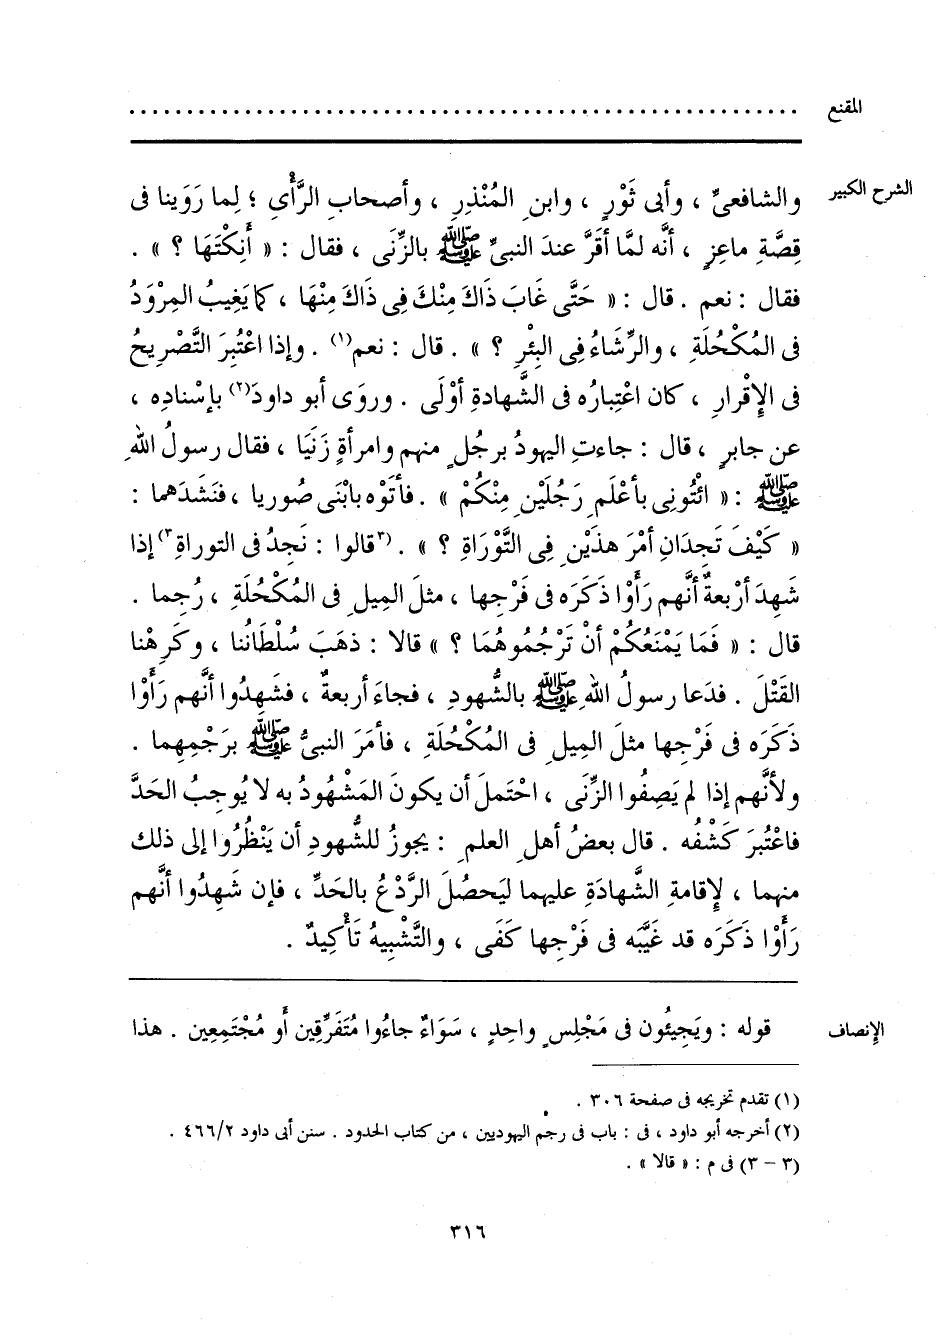 المقنع . . . . . . . . . . . . . . . . . . . . . . . . . . . . . . . . . . . . . . . . . . . . . . . . . . . . . . . . . .
الشرح الكبير
والشافعىِّ ، وأبى ثَوْرٍ ، وابنِ المُنْذِرِ ، وأصحابِ الرَّأْىِ ؛ لِما رَوَينا فى
قِصَّةِ ماعِزٍ ، أنَّه لمَّا أقَرَّ عندَ النبىِّ ﷺ بالزِّنَى ، فقال : « أَنِكْتَهَا ؟ » .
فقال : نعم . قال : « حَتَّى غَابَ ذَاكَ مِنْكَ فِى ذَاكَ مِنْهَا ، كما يَغِيبُ المِرْوَدُ
فى المُكْحُلَةِ ، والرِّشَاءُ فِى البِئْرِ ؟ » . قال : نعم(١) . وإذا اعْتُبِرَ التَّصْرِيحُ
فى الإِقْرارِ ، كان اعْتِبارُه فى الشَّهادةِ أوْلَى . وروَى أبو داودَ(٢) بإسْنادِه ،
عن جابرٍ ، قال : جاءتِ اليهودُ برجُلٍ منهم وامرأةٍ زَنَيَا ، فقال رسولُ اللهِ
ﷺ : « ائْتُونِى بأعْلَمِ رَجُلَيْنِ مِنْكُمْ » . فأتَوْه بابْنَى صُوريا ، فنَشَدَهما :
« كَيْفَ تَجِدَانِ أمْرَ هذَيْنِ فِى التَّوْرَاةِ ؟ » . (٣قالوا : نَجِدُ فى التوراةِ٣) إذا
شَهِدَ أرْبعةٌ أنَّهم رَأَوْا ذَكَرَه فى فَرْجِها ، مثلَ المِيلِ فى المُكْحُلَةِ ، رُجِما .
قال : « فَمَا يَمْنَعُكُمْ أنْ تَرْجُمُوهُمَا ؟ » قالا : ذهَبَ سُلْطَانُنا ، وكَرِهْنا
القَتْلَ . فدَعا رسولُ اللهِ ﷺ بالشُّهودِ ، فجاءَ أربعةٌ ، فشَهِدُوا أنَّهم رَأَوْا
ذَكَرَه فى فَرْجِها مثلَ المِيلِ فى المُكْحُلَةِ ، فأمَرَ النبىُّ ﷺ برَجْمِهما .
ولأنَّهم إذا لم يَصِفُوا الزِّنَى ، احْتَملَ أن يكونَ المَشْهُودُ به لا يُوجِبُ الحَدَّ
فاعْتُبِرَ كَشْفُه . قال بعضُ أهلِ العلمِ : يجوزُ للشُّهودِ أن يَنْظُرُوا إلى ذلك
منهما ، لإِقامةِ الشَّهادَةِ عليهما ليَحصُلَ الرَّدْعُ بالحَدِّ ، فإن شَهِدُوا أنَّهم
رَأَوْا ذَكَرَه قد غَيَّبَه فى فَرْجِها كَفَى ، والتَّشْبِيهُ تَأْكِيدٌ .
الإنصاف
قوله : ويَجِيئُون فى مَجْلِسٍ واحِدٍ ، سَوَاءٌ جاءُوا مُتَفَرِّقِين أو مُجْتَمِعِين . هذا
(١) تقدم تخريجه فى صفحة ٣٠٦ .
(٢) أخرجه أبو داود ، فى : باب فى رجم اليهوديين ، من كتاب الحدود . سنن أبى داود ٤٦٦/٢ .
(٣ - ٣) فى م : « قالا » .
٣١٦